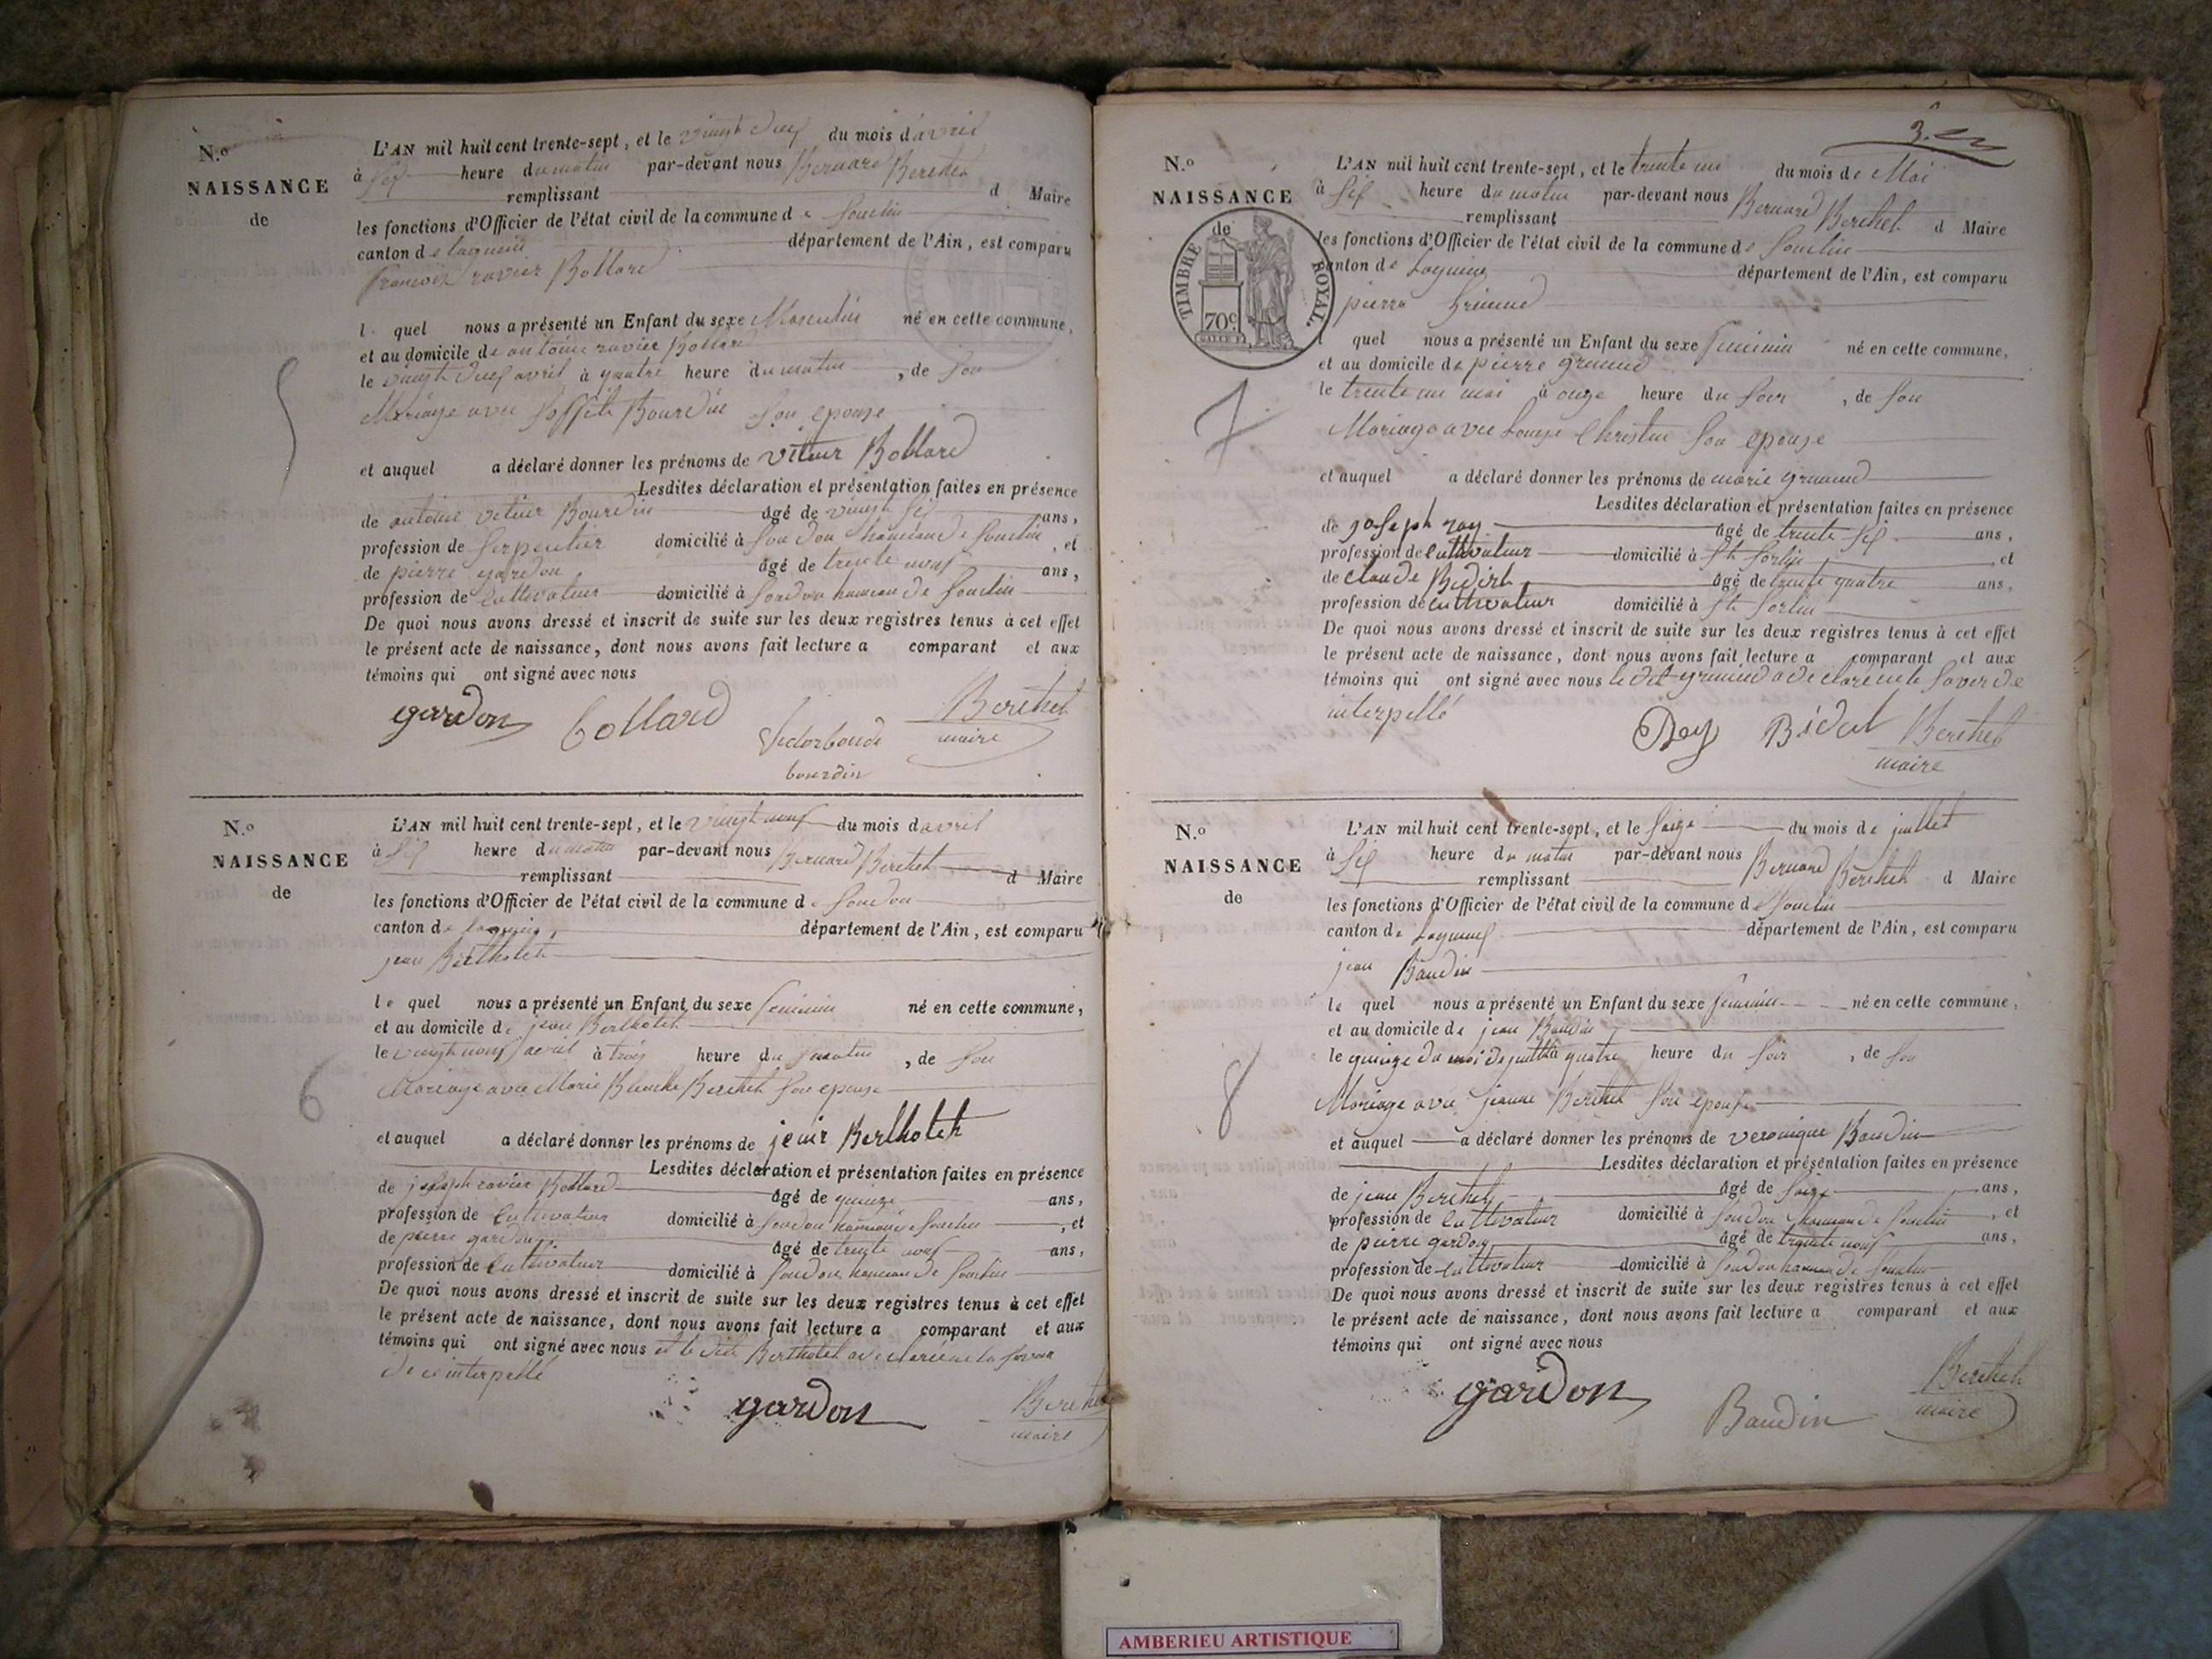 N.º
NAISSANCE
de
L'AN mil huit cent trente-sept, et le vingt du mois d'avril
à heure du matin par-devant nous Bernard Berthet
remplissant d Maire
les fonctions d'Officier de l'état civil de la commune de
canton de département de l'Ain, est comparu
François ravier Bollard
l quel nous a présenté un Enfant du sexe Masculin né en cette commune,
et au domicile de antoine ravier Bollard
le vingt avril à quatre heure du matin, de son
Mariage avec Bourdin son epouse
5
et auquel a déclaré donner les prénoms de Bollard
Lesdites déclaration et présentation faites en présence
de antoine Bourdin âgé de vingt ans,
profession de domicilié à hameau de , et
de pierre gardon âgé de trente neuf ans,
profession de Cultivateur domicilié à hameau de
De quoi nous avons dressé et inscrit de suite sur les deux registres tenus à cet effet
le présent acte de naissance, dont nous avons fait lecture a comparant et aux
témoins qui ont signé avec nous
gardon bollard Berthet
maire
bourdin
N.º
NAISSANCE
de
L'AN mil huit cent trente-sept, et le vingt neuf du mois d avril
à heure du matin par-devant nous Bernard Berthet
remplissant d Maire
les fonctions d'Officier de l'état civil de la commune de
canton de département de l'Ain, est comparu
jean Bertholet
le quel nous a présenté un Enfant du sexe feminin né en cette commune,
et au domicile de jean Bertholet
le vingt neuf avril à trois heure du matin, de son
Mariage avec Marie Berthet son epouse
6
et auquel a déclaré donner les prénoms de Bertholet
Lesdites déclaration et présentation faites en présence
de joseph ravier Bollard âgé de quinze ans,
profession de Cultivateur domicilié à , et
de pierre gardon âgé de trente neuf ans,
profession de Cultivateur domicilié à hameau de
De quoi nous avons dressé et inscrit de suite sur les deux registres tenus à cet effet
le présent acte de naissance, dont nous avons fait lecture a comparant et aux
témoins qui ont signé avec nous et le dit Bertholet a declaré ne
interpellé
gardon Berthet
maire
3.
N.º
NAISSANCE
de
TIMBRE ROYAL.
70c
L'AN mil huit cent trente-sept, et le trente un du mois de Mai
à heure du matin par-devant nous Bernard Berthet
remplissant d Maire
les fonctions d'Officier de l'état civil de la commune de
canton de département de l'Ain, est comparu
pierre
l quel nous a présenté un Enfant du sexe feminin né en cette commune,
et au domicile de pierre
le trente un mai à onze heure du soir, de son
Mariage avec Christin son epouse
7
et auquel a déclaré donner les prénoms de marie
Lesdites déclaration et présentation faites en présence
de joseph âgé de trente ans,
profession de cultivateur domicilié à et
de claude âgé de trente quatre ans,
profession de cultivateur domicilié à
De quoi nous avons dressé et inscrit de suite sur les deux registres tenus à cet effet
le présent acte de naissance, dont nous avons fait lecture a comparant et aux
témoins qui ont signé avec nous le dit a declaré ne
interpellé
Berthet
maire
N.º
NAISSANCE
de
L'AN mil huit cent trente-sept, et le seize du mois de juillet
à heure du matin par-devant nous Bernard Berthet
remplissant d Maire
les fonctions d'Officier de l'état civil de la commune de
canton de département de l'Ain, est comparu
jean Baudin
le quel nous a présenté un Enfant du sexe feminin né en cette commune,
et au domicile de jean Baudin
le quinze du moi de à quatre heure du soir, de son
Mariage avec jeanne Berthet son epouse
8
et auquel a déclaré donner les prénoms de veronique Baudin
Lesdites déclaration et présentation faites en présence
de jean Berthet âgé de ans,
profession de Cultivateur domicilié à hameau de , et
de pierre gardon âgé de trente neuf ans,
profession de cultivateur domicilié à hameau de
De quoi nous avons dressé et inscrit de suite sur les deux registres tenus à cet effet
le présent acte de naissance, dont nous avons fait lecture a comparant et aux
témoins qui ont signé avec nous
gardon Baudin Berthet
maire
AMBERIEU ARTISTIQUE